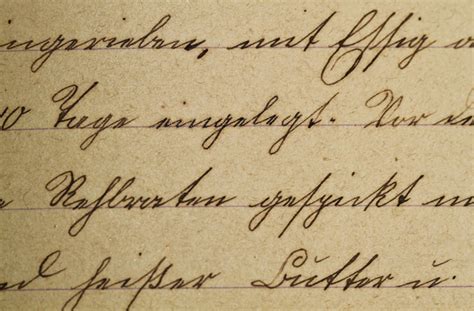 ingerieben, mit Essig
Tage eingelegt. Vor
Rehbraten gespickt
heißer Butter u.